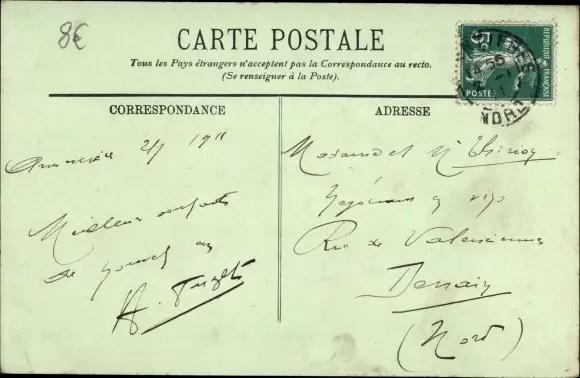 8€
CARTE POSTALE
Tous les Pays étrangers n'acceptent pas la Correspondance au recto.
(Se renseigner à la Poste).
REPUBLIQUE FRANÇAISE
POSTES
NORD
CORRESPONDANCE
ADRESSE
1911
Meilleurs souhaits
de nouvel an
Madame et Mr
Rue de Valenciennes
Denain
(Nord)